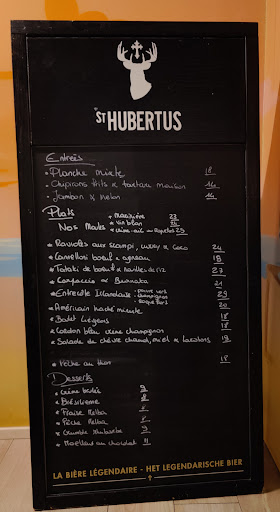 ST HUBERTUS
Entrées
• Planche mixte 18
• Chipirons frits & tartare maison 16
• Jambon & melon 14
Plats
Nos Moules
• Marinière 23
• Vin blanc 24
• crème-ail ou Roquefort 25
• Raviolis aux scampi, curry & coco 24
• Cannelloni boeuf & agneau 18
• Tataki de boeuf & nouilles de riz 27
• Carpaccio & Burrata 21
• Entrecôte Irlandaise 29
• poivre vert
• champignons
• Roquefort
• Américain haché minute 20
• Boulet Liégeois 18
• Cordon bleu crème champignon 18
• Salade de chèvre chaud, miel & lardons 18
• Pêche au thon 18
Desserts
• Crème brûlée 9
• Brésilienne 8
• Fraise Melba 8
• Pêche Melba 8
• Crumble Rhubarbe 9
• Moelleux au chocolat 11
LA BIÈRE LÉGENDAIRE - HET LEGENDARISCHE BIER